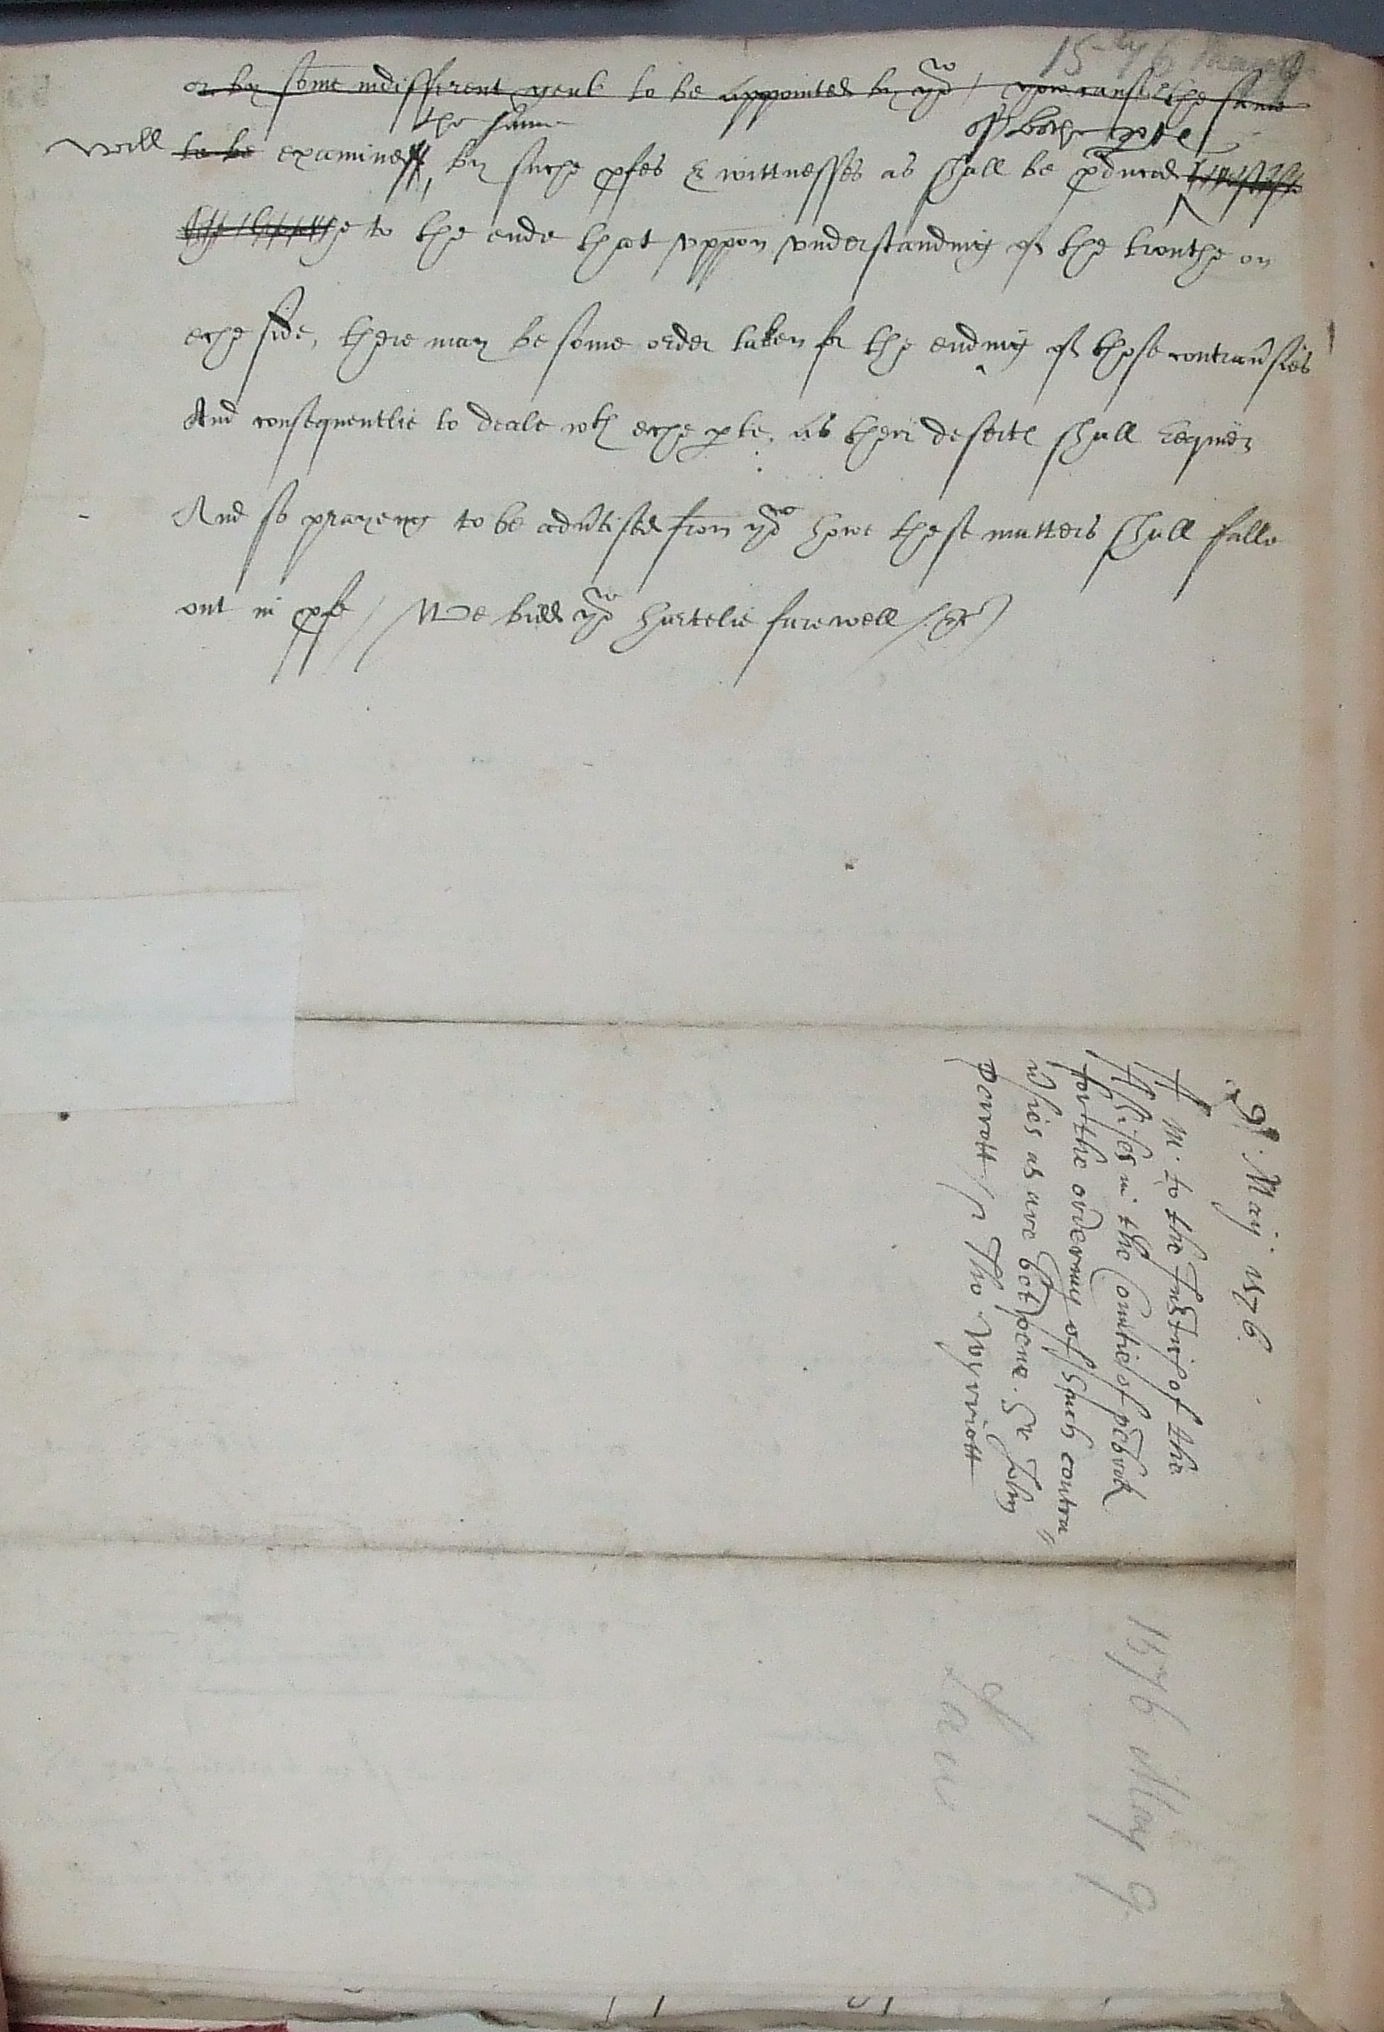 1576 May 9
or by some indifferent gent to be appointed by yow / yow cause the same
the same of bothe ptes
will to be examined, by suche pfes & wittnesses as shall be pduced
to the ende that vppon vnderstanding of the trouthe on
eche side, there may be some order taken for the ending of those contrav'sies
And consequentlie to deale wth eche pte, as their desertes shall requier
And so prayeng to be adv'tised from yow howe these matters shall falle
out in pfe / We bidd yow hartelie farewell /
9. Maij. 1576.
A m. to the Justic of the
Assises in the Countie of pēbrok
for the ordering of such contra„
u'sies as are betwene. Sr John
Perrott / & Tho. Wyrriott
1576 May 9.
Law